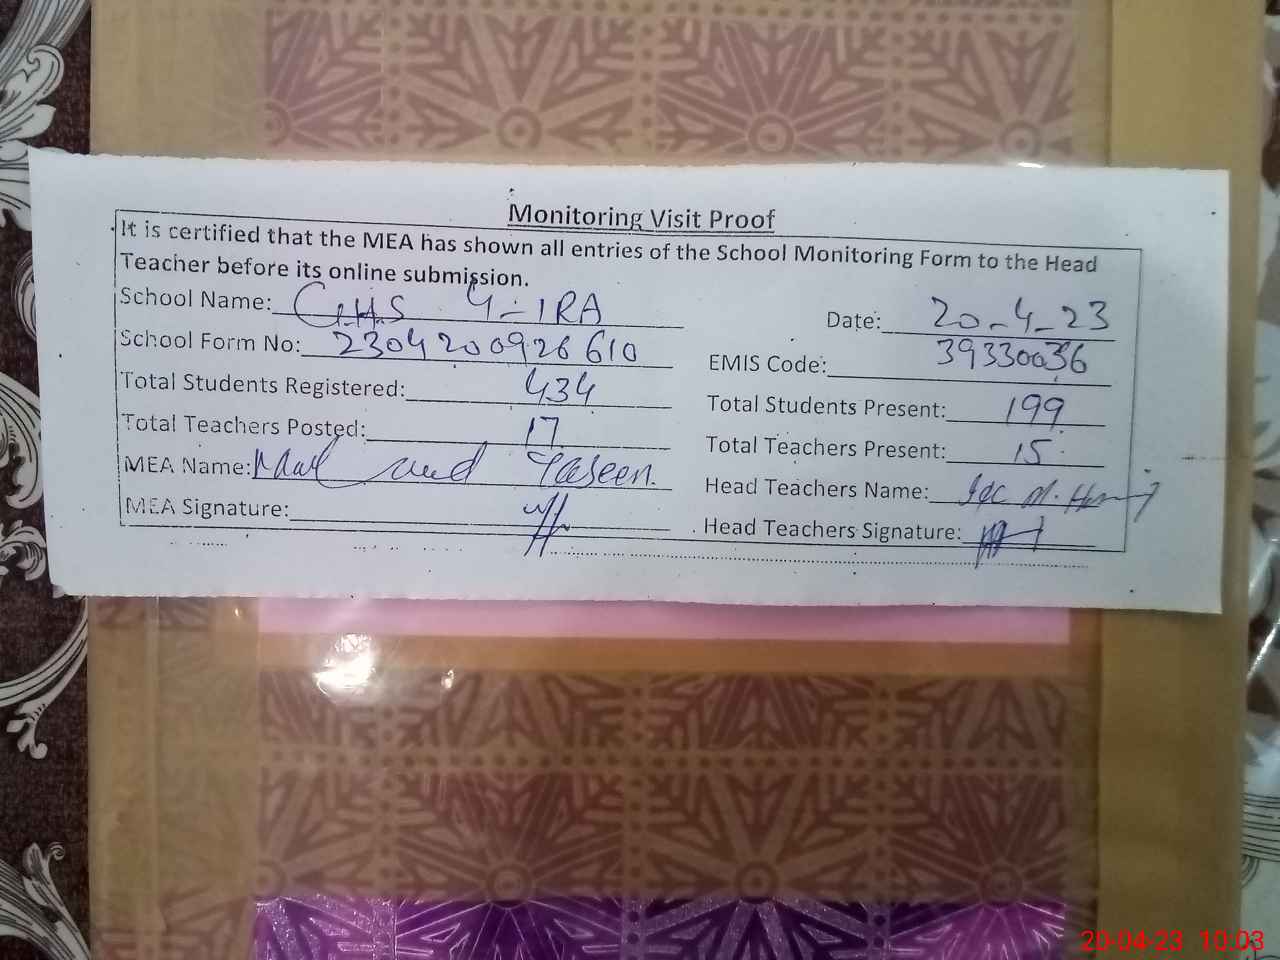 Monitoring Visit Proof
It is certified that the MEA has shown all entries of the School Monitoring Form to the Head
Teacher before its online submission.
School Name: G.H.S 4-1RA Date: 20-4-23
School Form No: 2304200926610 EMIS Code: 39330036
Total Students Registered: 434 Total Students Present: 199
Total Teachers Posted: 17 Total Teachers Present: 15
MEA Name: Yaseen. Head Teachers Name:
MEA Signature: Head Teachers Signature:
20-04-23 10:03